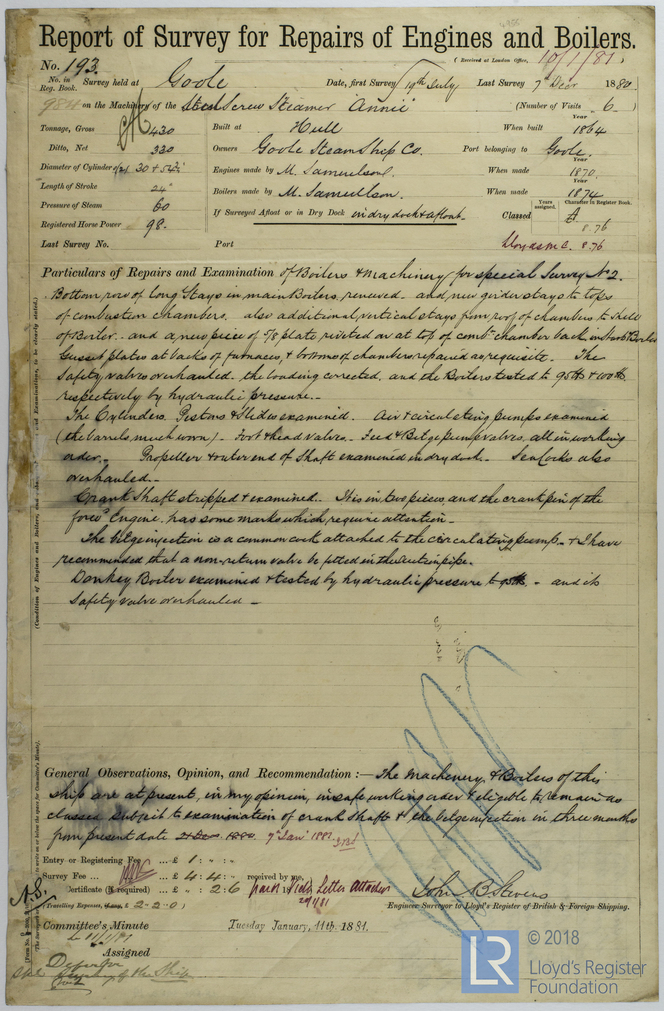 Report of Survey for Repairs of Engines and Boilers.
(Received at London Office, 10/1/81)
No. 193.
No. in Reg. Book. Survey held at Goole Date, first Survey 19th July Last Survey 7th Decr 1880
984 on the Machinery of the Screw Steamer Annie (Number of Visits 6)
Tonnage, Gross 430 Built at Hull When built Year 1864
Ditto, Net 330 Owners Goole Steam Ship Co. Port belonging to Goole.
Diameter of Cylinders 30 + 54 Engines made by M. Samuelson. When made Year 1870
Length of Stroke 24" Boilers made by M. Samuelson. When made Year 1874
Pressure of Steam 60 If Surveyed Afloat or in Dry Dock in dry dock & afloat. Classed Years assigned. Character in Register Book. A
Registered Horse Power 98. 8.76
Last Survey No. Port Lloyds M.C. 8.76
Particulars of Repairs and Examination of Boilers & Machinery for special Survey No 2.
Bottom row of long Stays in main Boilers, renewed. and new girder stays to tops
of combustion chambers. also additional vertical stays from roof of chambers to shell
of Boiler. and a new piece of 5/8 plate riveted on at top of combn chamber back in Boiler
Gusset plates at backs of furnaces, & bottoms of chambers repaired as requisite. The
Safety valves overhauled. the loading corrected, and the Boilers tested to 95 lbs & 100 lbs
respectively by hydraulic pressure.-
The Cylinders, Pistons & Slides examined. Air & circulating pumps examined
(the barrels much worn)- Foot & head valves. Feed & Bilge pump valves, all in working
order.- Propeller & outer end of Shaft examined in dry dock - Sea Cocks also
overhauled.-
Crank Shaft stripped & examined. It is in two pieces, and the crank pin of the
forwd Engine has some marks which require attention -
The bilge injection is a common cock attached to the circulating pump. & I have
recommended that a non-return valve be fitted in the suction pipe.
Donkey Boiler examined & tested by hydraulic pressure to 95 lbs - and its
Safety valve overhauled -
General Observations, Opinion, and Recommendation :- The Machinery & Boilers of this
ship are at present, in my opinion, in safe working order & eligible to remain as
classed subject to examination of crank shaft & the bilge injection in three months
from present date 21 Decr 1880. 7th Jany 1881.
Entry or Registering Fee ... £ 1 : " : "
Survey Fee ... £ 4 : 4 : " received by me,
Certificate (if required) ... £ " : 2 : 6 Letter Attached
29/1/81
(Travelling Expenses, if any, £ 2-2-0) John B Stevens
Engineer Surveyor to Lloyd's Register of British & Foreign Shipping.
Committee's Minute Tuesday January, 11th. 1881.
Assigned
of the Ship
(Condition of Engines and Boilers, and Examinations, to be clearly stated.)
LR
© 2018
Lloyd's Register
Foundation